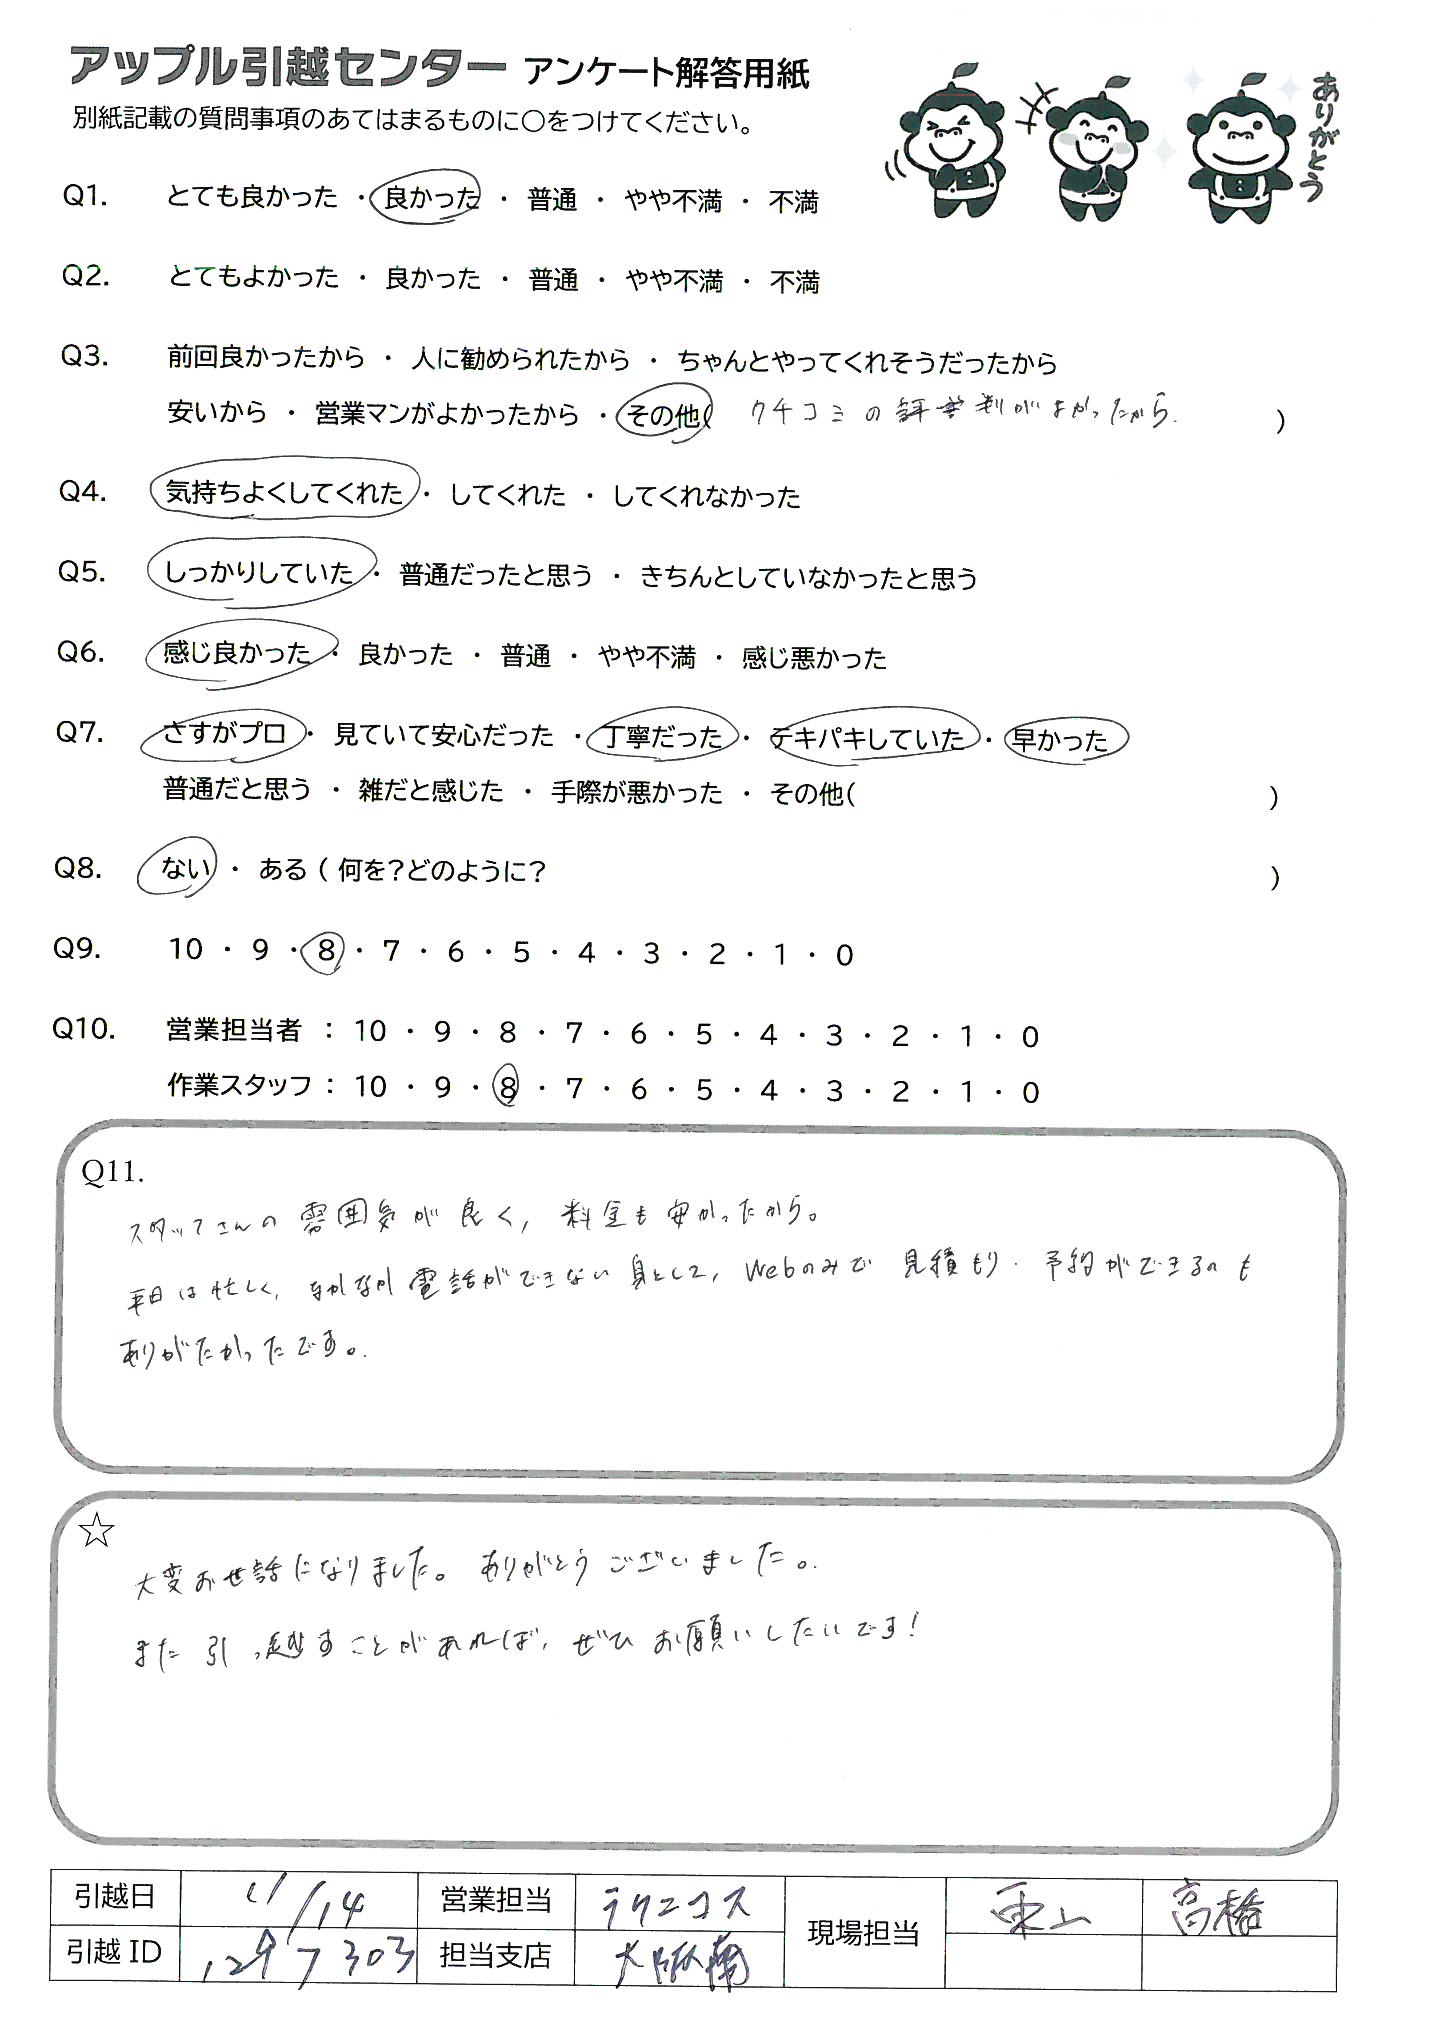 アップル引越センター アンケート解答用紙
別紙記載の質問事項のあてはまるものに○をつけてください。
ありがとう
Q1. とても良かった ・ 良かった ・ 普通 ・ やや不満 ・ 不満
Q2. とてもよかった ・ 良かった ・ 普通 ・ やや不満 ・ 不満
Q3. 前回良かったから ・ 人に勧められたから ・ ちゃんとやってくれそうだったから
安いから ・ 営業マンがよかったから ・ その他( クチコミの評判がよかったから. )
Q4. 気持ちよくしてくれた ・ してくれた ・ してくれなかった
Q5. しっかりしていた ・ 普通だったと思う ・ きちんとしていなかったと思う
Q6. 感じ良かった ・ 良かった ・ 普通 ・ やや不満 ・ 感じ悪かった
Q7. さすがプロ ・ 見ていて安心だった ・ 丁寧だった ・ テキパキしていた ・ 早かった
普通だと思う ・ 雑だと感じた ・ 手際が悪かった ・ その他( )
Q8. ない ・ ある ( 何を?どのように? )
Q9. 10 ・ 9 ・ 8 ・ 7 ・ 6 ・ 5 ・ 4 ・ 3 ・ 2 ・ 1 ・ 0
Q10. 営業担当者 : 10 ・ 9 ・ 8 ・ 7 ・ 6 ・ 5 ・ 4 ・ 3 ・ 2 ・ 1 ・ 0
作業スタッフ : 10 ・ 9 ・ 8 ・ 7 ・ 6 ・ 5 ・ 4 ・ 3 ・ 2 ・ 1 ・ 0
Q11.
スタッフさんの雰囲気が良く, 料金も安かったから。
平日は忙しく, なかなか電話ができない身として, Webのみで見積もり・予約ができるのも
ありがたかったです。
☆
大変お世話になりました。ありがとうございました。
また引っ越すことがあれば, ぜひお願いしたいです!
引越日 11/14 営業担当 ラクニコス 現場担当 東山 高橋
引越 ID 1297303 担当支店 大阪南